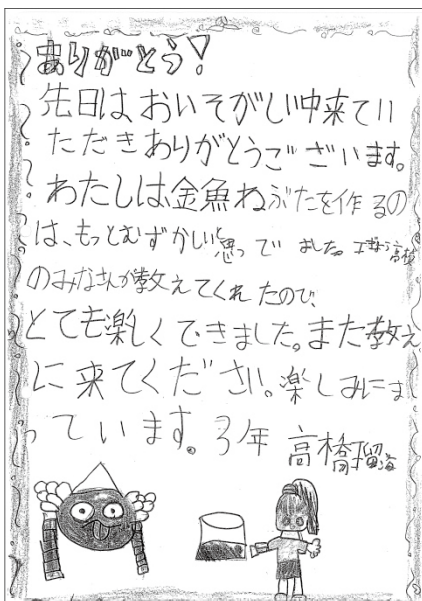 ありがとう!
先日はおいそがしい中来てい
ただきありがとうございます。
わたしは、金魚ねぶたを作るの
は、もっとむずかしいと思っで ました。工ぎょう高校
のみなさんが教えてくれたので、
とても楽しくできました。また教え
に来てください。楽しみにま
っています。3年 高橋瑠海